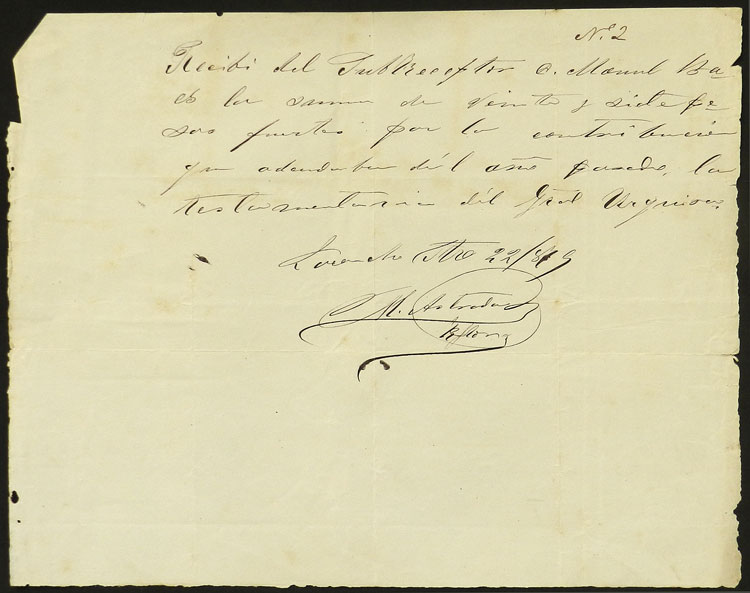 Nº 2
Recibi del SubReceptor C. Manuel Ba
es la suma de veinte y siete pe
sos fuertes por la contribución
que adeudaba del año pasado, la
testamentaria del Gral Urquiza.
22/
M.